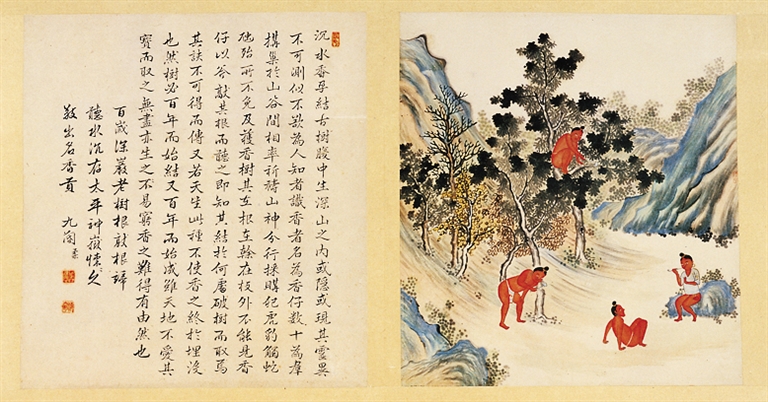 沉水香孕結古樹腹中生深山之內或隱或現其靈異
不可測似不欲為人知者識香者名為香仔數十為羣
搆巢於山谷間相率祈禱山神分行採購犯虎豹觸蛇
虺殆所不免及獲香樹其在根在榦在枝外不能見香
仔以斧敲其根而聽之即知其結於何處破樹而取焉
其訣不可得而傳又若天生此種不使香之終於埋沒
也然樹必百年而始結又百年而始成雖天地不愛其
寶而取之無盡亦生之不易窮香之難得有由然也
百歲深巖老樹根敲根諦
聽水沉存太平神嶽懷久
出名香貢 九閽